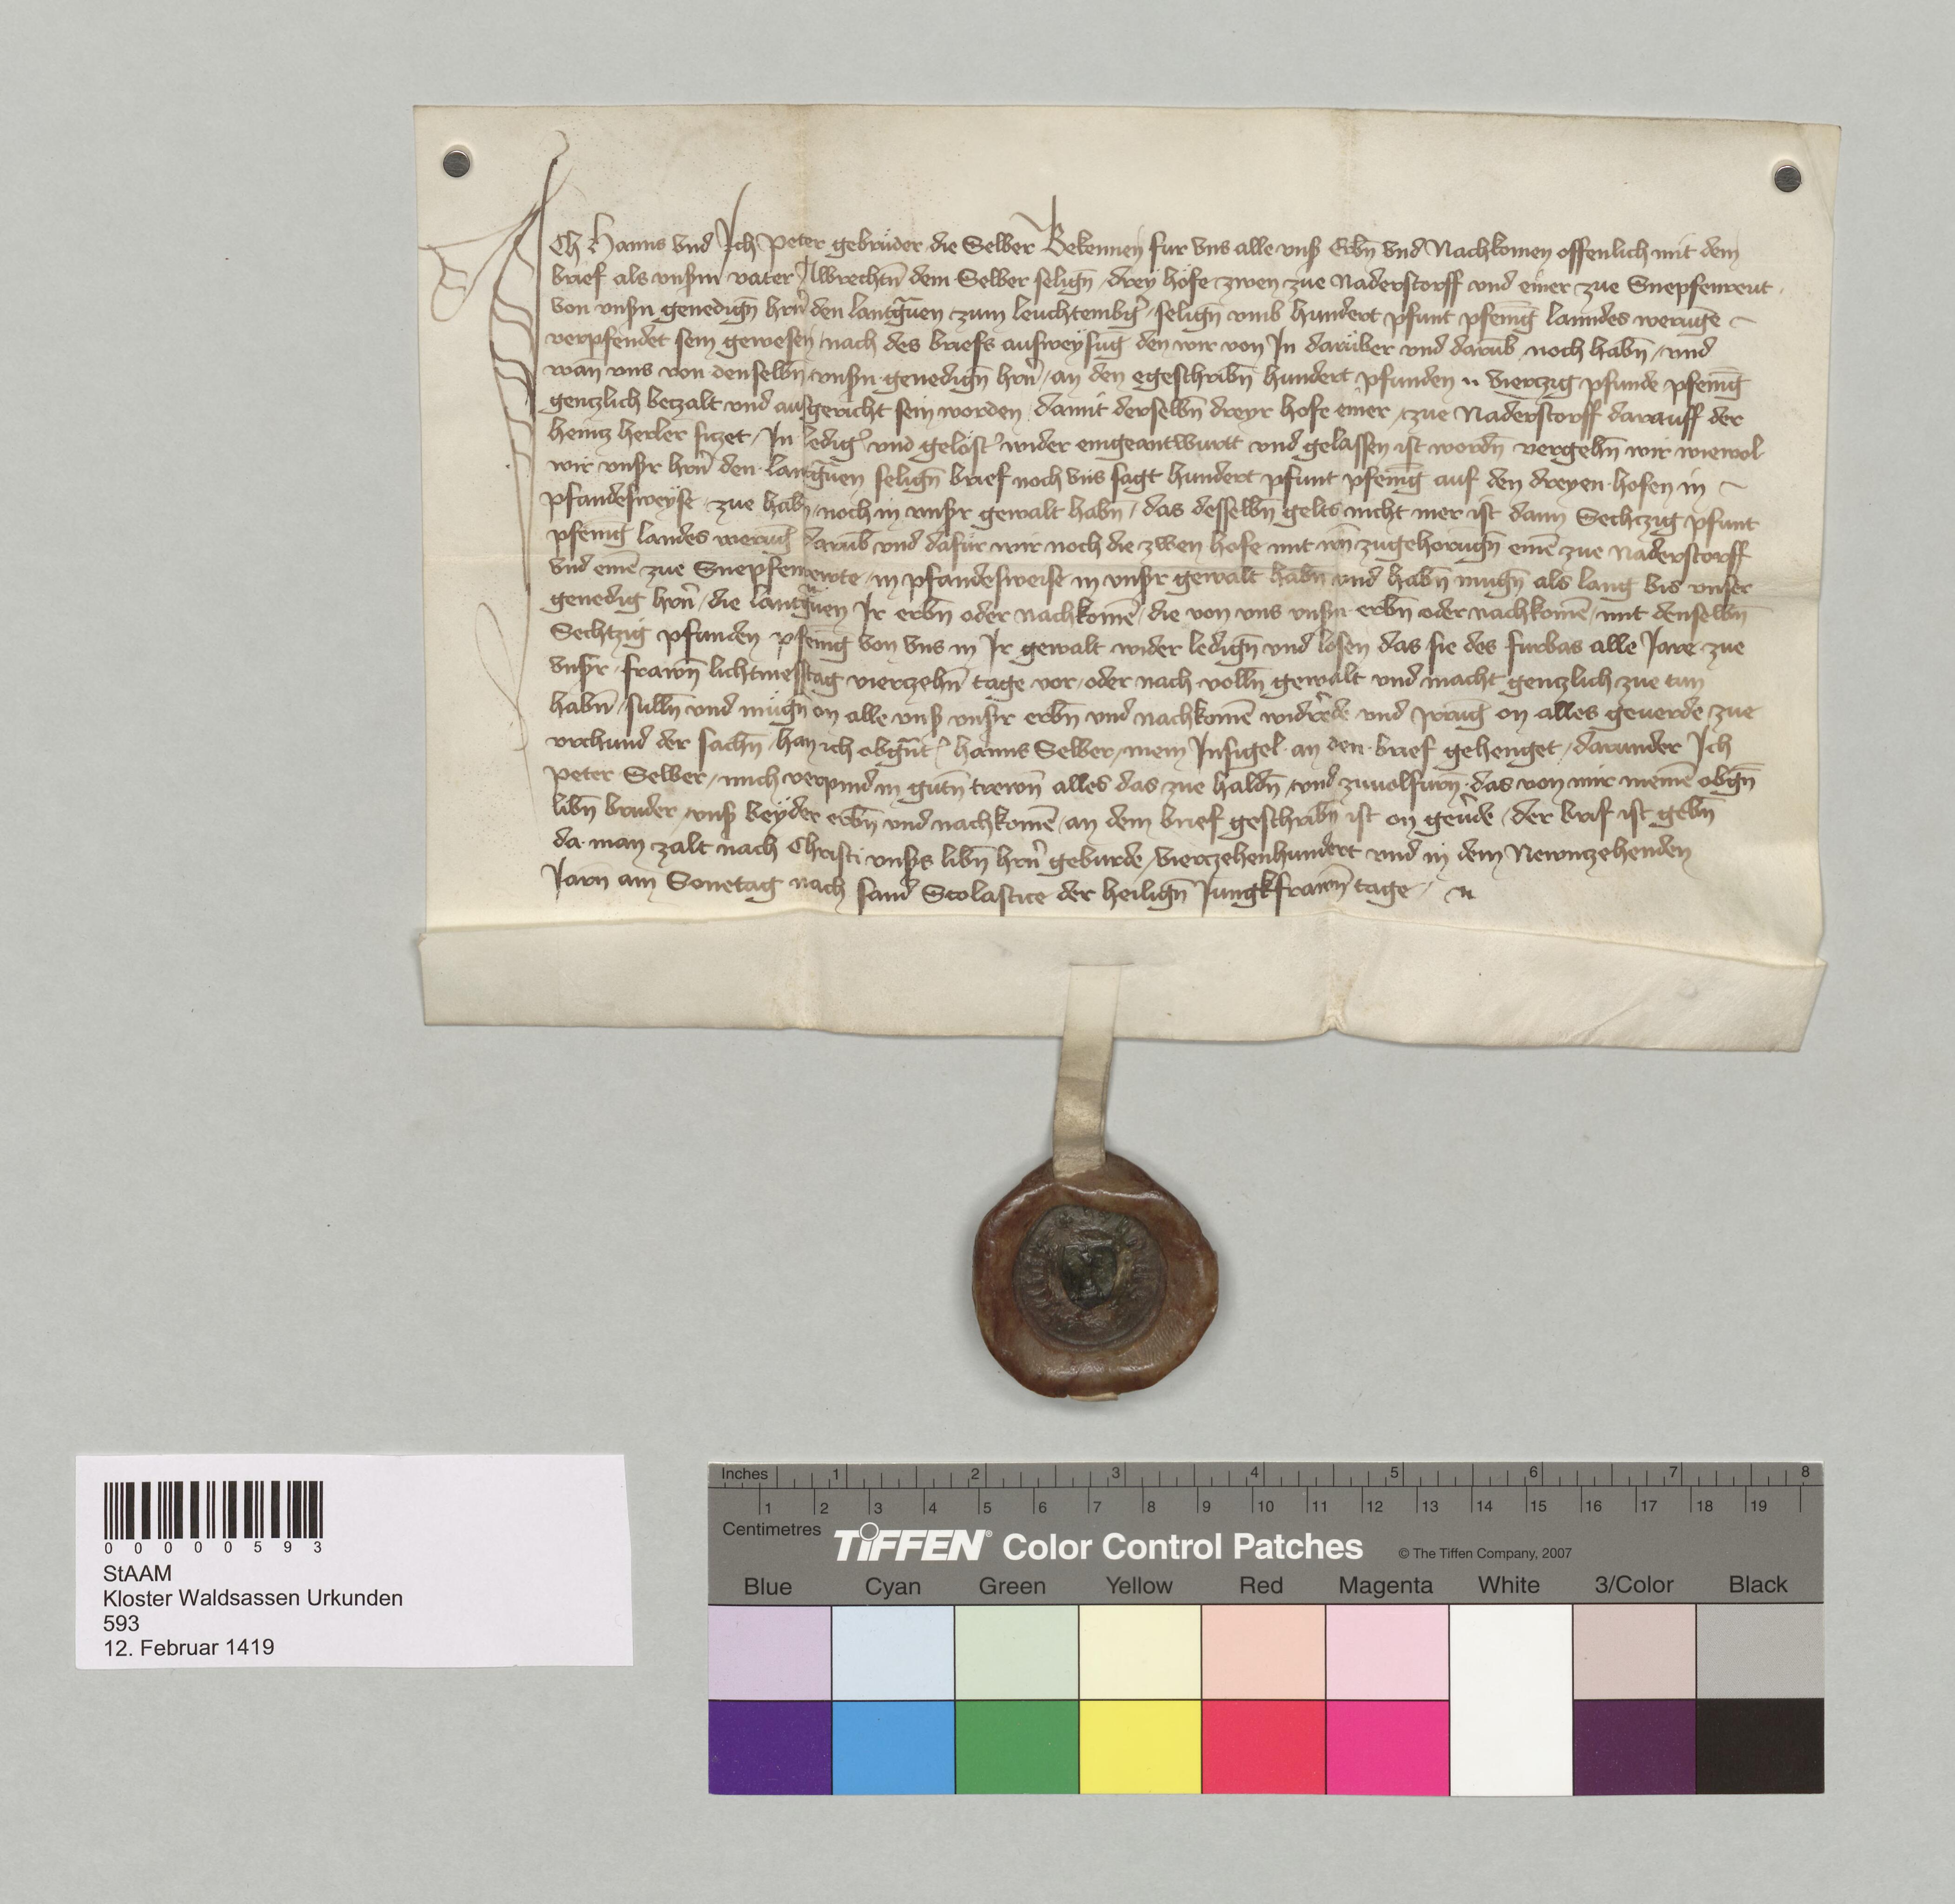 ICh Hanns vnd Ich Peter gebruder die Selber Bekennen fur vns alle vnsß Erbn̄ vnd Nachkomen offenlich mit dem
brief als vnßm vater Albrechtn̄ dem Selber selign̄ / drey hofe zwen zue Naderstorff vnd einer zue Snepfenreut
von vnßn genedign̄ hrn̄ den lantgūen zum leuchtembḡ / selign̄ vmb hundert pfunt pfenīg lanndes weruge
verpfendet sein gewesen / nach des briefs ausweysuḡ den wir von In daruber vnd darūb noch habn̄ / vnd
wan̄ vns von denselbn̄ vnßn genedign̄ hrn̄ / an den egeschribn̄ hundert pfunden vierczig pfunde pfenīg
genczlich beczalt vnd ausgericht sein worden damit derselbn̄ dreyr hofe einer / zue Naderstorff darauff der
heincz herler siczet / In ledig' vnd gelöst' wider eingeantwurtt vnd gelassen ist wordn̄ vergehn̄ wir wiewol
wir vnßr hrn̄ den lantgūen selign̄ brief noch vns sagt hundert pfunt pfenīg auf den dreyen hofen in
pfandesweyse zue habn̄ / noch in vnßr gewalt habn̄ / das desselbn̄ gelts nicht mer ist dann Sechczig pfunt
pfenig landes weruḡ darūb vnd dafür wir noch die zwen hofe mit irn̄ zugehorugn̄ einē zue Naderstorff
vnd einē zue Snepfenrewte / in pfandesweise in vnßr gewalt habn̄ vnd habn̄ mugn̄ als lang bis vnser
genedig hrn̄ / die lantgūen Ir erbn̄ oder nachkomē / die von vns vnßn erbn̄ oder nachkomē / mit denselbn̄
Sechtzig pfunden pfenīg von vns in Ir gewalt wider ledign̄ vnd losen das sie des furbas alle Jare zue
vnßr frawn̄ lichtmesstag vierczehn̄ tage vor / oder nach volln̄ gewalt vnd macht genczlich zue tun
habn̄ / sulln̄ vnd mugn̄ on alle vnsß vnßr erbn̄ vnd nachkomē widrede vnd irruḡ on alles geuerde zue
vrchund der sachn̄ / han ich obgn̄t' hanns Selber / mein Insigel an den brief gehenget / darunder Ich
peter Selber / mich verpind in gutn̄ trewn̄ alles das zue haldn̄ vnd zuuolfurn̄ das von mir meinē obgn̄
libn̄ bruder / vnsß beyder erbn̄ vnd nachkomē / an dem brief geschribn̄ ist on geūde / der brif ist gebn̄
da man zalt nach Christi vnßs libn̄ hrn̄ geburde / vierczehenhundert vnd in dem Newnczehenden
Jarn am Sonetag nach sand Scolastice der heilign̄ Jungkfrawn̄ tage /
0 0 0 0 0 5 9 3
StAAM
Kloster Waldsassen Urkunden
593
12. Februar 1419
Inches 1 2 3 4 5 6 7 8
1 2 3 4 5 6 7 8 9 10 11 12 13 14 15 16 17 18 19
Centimetres
TIFFEN® Color Control Patches © The Tiffen Company, 2007
Blue Cyan Green Yellow Red Magenta White 3/Color Black